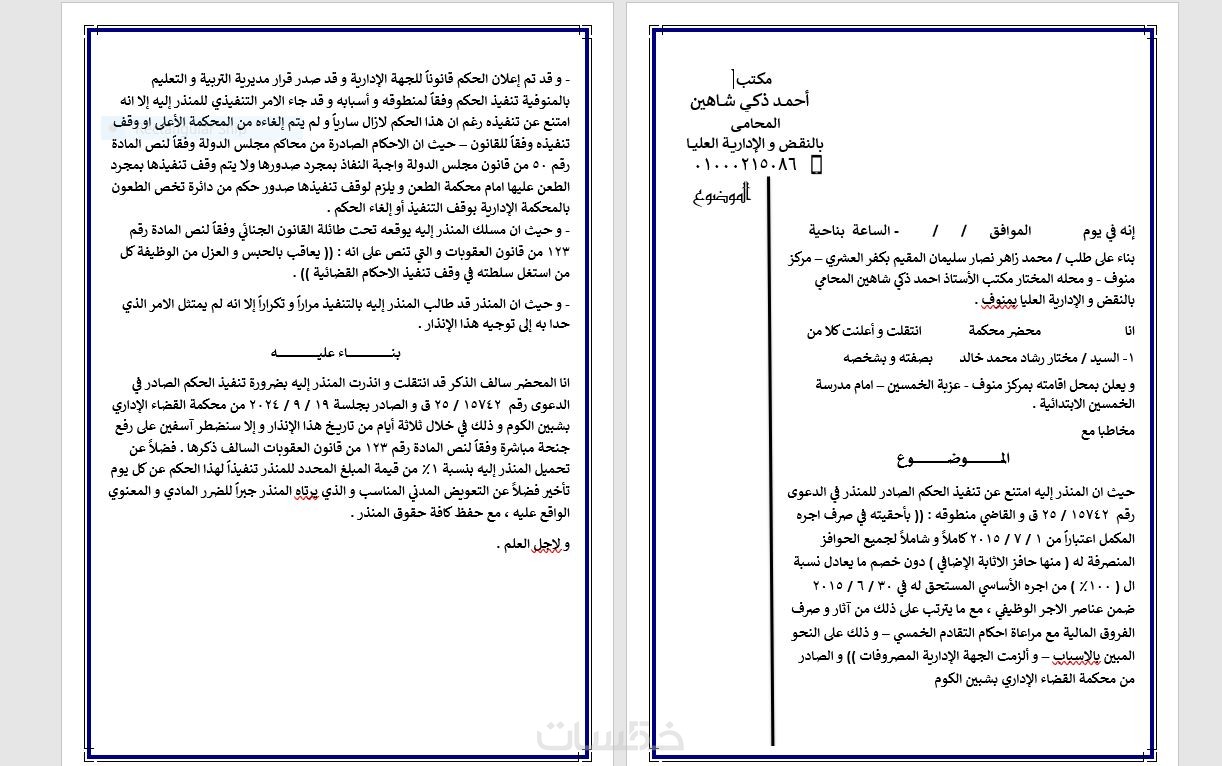 مكتب
أحمد ذكي شاهين
المحامى
بالنقض و الإدارية العليا
٠١٠٠٠٢١٥٠٨٦
الموضوع
إنه في يوم الموافق / / - الساعة بناحية
بناء على طلب / محمد زاهر نصار سليمان المقيم بكفر العشري – مركز
منوف - و محله المختار مكتب الأستاذ احمد ذكي شاهين المحامي
بالنقض و الإدارية العليا يمنوف .
انا محضر محكمة انتقلت و أعلنت كلا من
١- السيد / مختار رشاد محمد خالد بصفته و بشخصه
و يعلن بمحل اقامته بمركز منوف - عزبة الخمسين – امام مدرسة
الخمسين الابتدائية .
مخاطبا مع
المـــــــوضـــــــوع
حيث ان المنذر إليه امتنع عن تنفيذ الحكم الصادر للمنذر في الدعوى
رقم ١٥٧٤٢ / ٢٥ ق و القاضي منطوقه : (( بأحقيته في صرف اجره
المكمل اعتباراً من ١ / ٧ / ٢٠١٥ كاملاً و شاملاً لجميع الحوافز
المنصرفة له ( منها حافز الاثابة الإضافي ) دون خصم ما يعادل نسبة
ال ( ١٠٠٪ ) من اجره الأساسي المستحق له في ٣٠ / ٦ / ٢٠١٥
ضمن عناصر الاجر الوظيفي ، مع ما يترتب على ذلك من آثار و صرف
الفروق المالية مع مراعاة احكام التقادم الخمسي – و ذلك على النحو
المبين بالاسباب – و ألزمت الجهة الإدارية المصروفات )) و الصادر
من محكمة القضاء الإداري بشبين الكوم
- و قد تم إعلان الحكم قانوناً للجهة الإدارية و قد صدر قرار مديرية التربية و التعليم
بالمنوفية تنفيذ الحكم وفقاً لمنطوقه و أسبابه و قد جاء الامر التنفيذي للمنذر إليه إلا انه
امتنع عن تنفيذه رغم ان هذا الحكم لازال سارياً و لم يتم إلغاءه من المحكمة الأعلى او وقف
تنفيذه وفقاً للقانون – حيث ان الاحكام الصادرة من محاكم مجلس الدولة وفقاً لنص المادة
رقم ٥٠ من قانون مجلس الدولة واجبة النفاذ بمجرد صدورها ولا يتم وقف تنفيذها بمجرد
الطعن عليها امام محكمة الطعن و يلزم لوقف تنفيذها صدور حكم من دائرة تخص الطعون
بالمحكمة الإدارية بوقف التنفيذ أو إلغاء الحكم .
- و حيث ان مسلك المنذر إليه يوقعه تحت طائلة القانون الجنائي وفقاً لنص المادة رقم
١٢٣ من قانون العقوبات و التي تنص على انه : (( يعاقب بالحبس و العزل من الوظيفة كل
من استغل سلطته في وقف تنفيذ الاحكام القضائية )) .
- و حيث ان المنذر قد طالب المنذر إليه بالتنفيذ مراراً و تكراراً إلا انه لم يمتثل الامر الذي
حدا به إلى توجيه هذا الإنذار .
بنـــــــــاء عليـــــــــه
انا المحضر سالف الذكر قد انتقلت و انذرت المنذر إليه بضرورة تنفيذ الحكم الصادر في
الدعوى رقم ١٥٧٤٢ / ٢٥ ق و الصادر بجلسة ١٩ / ٩ / ٢٠٢٤ من محكمة القضاء الإداري
بشبين الكوم و ذلك في خلال ثلاثة أيام من تاريخ هذا الإنذار و إلا سنضطر آسفين على رفع
جنحة مباشرة وفقاً لنص المادة رقم ١٢٣ من قانون العقوبات السالف ذكرها . فضلاً عن
تحميل المنذر إليه بنسبة ١٪ من قيمة المبلغ المحدد للمنذر تنفيذاً لهذا الحكم عن كل يوم
تأخير فضلاً عن التعويض المدني المناسب و الذي يرتاه المنذر جبراً للضرر المادي و المعنوي
الواقع عليه ، مع حفظ كافة حقوق المنذر .
و لاجل العلم .
خمسات